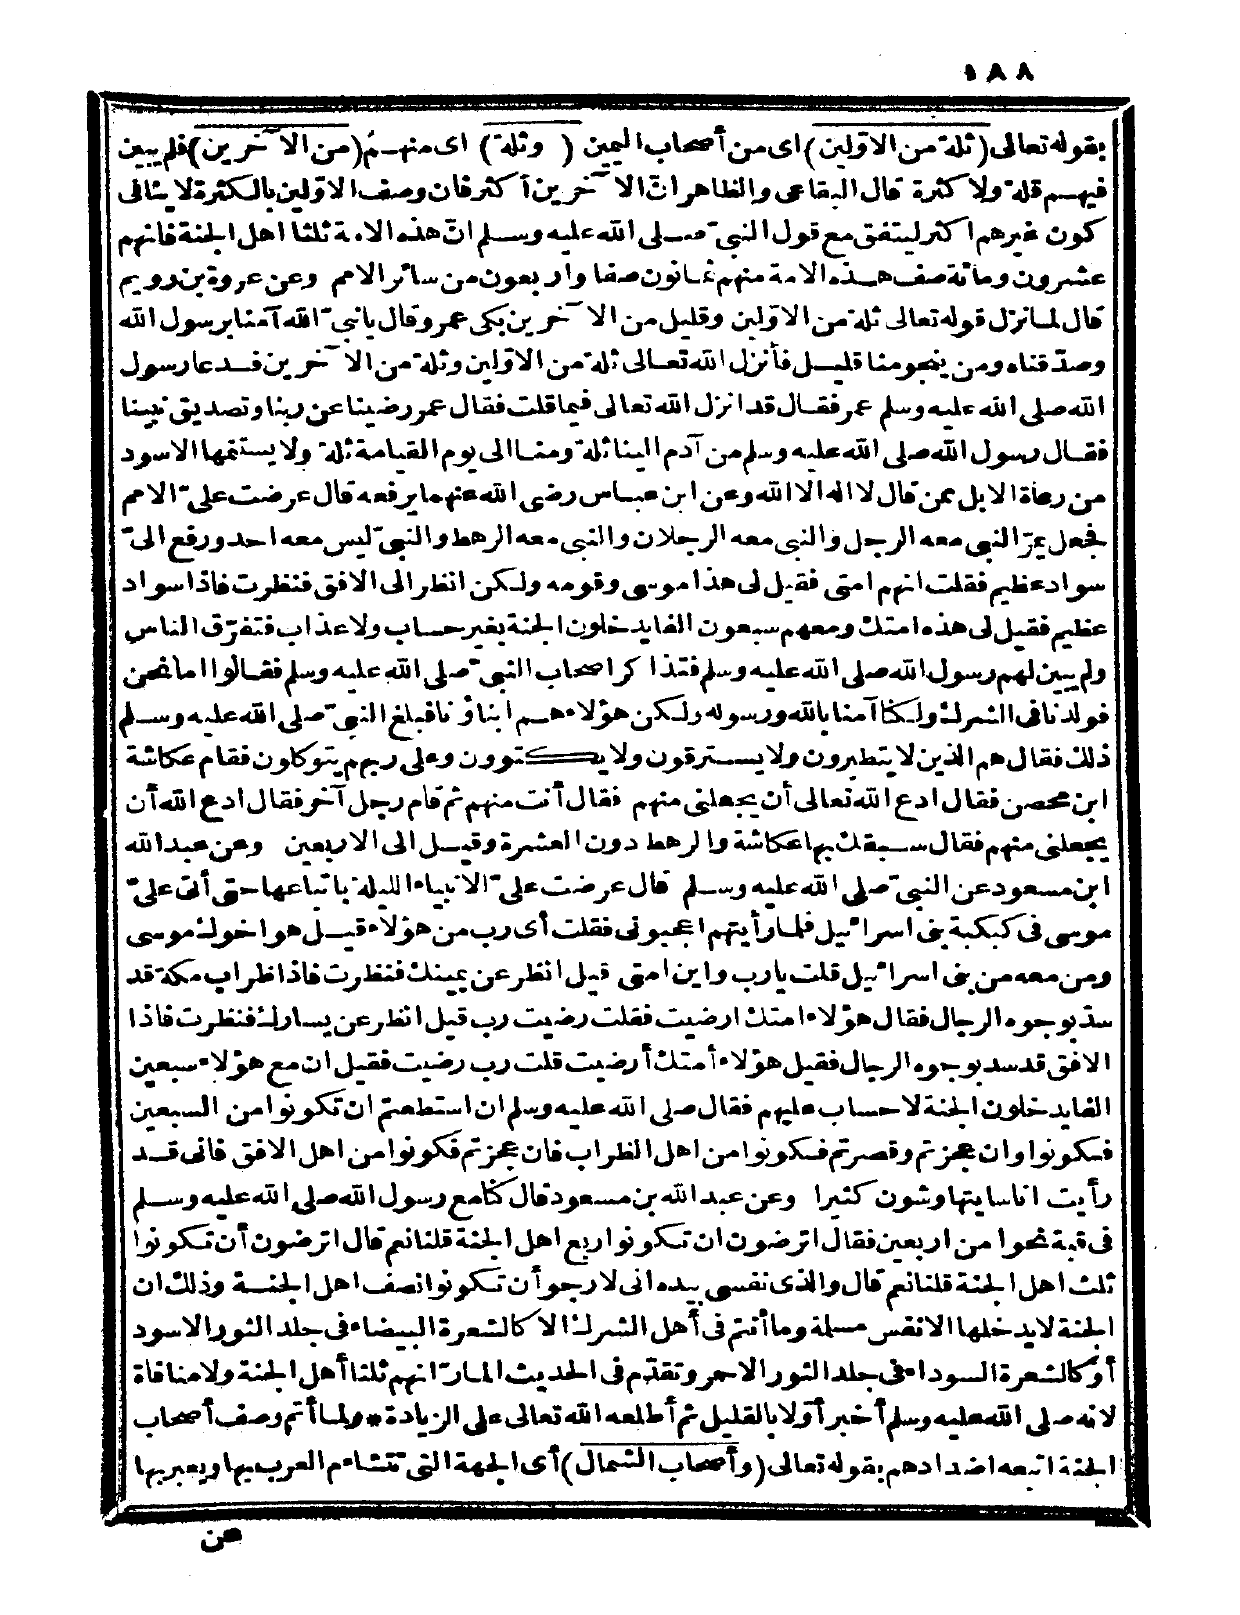 ١٨٨
بقوله تعالى (ثلة من الاوّلين) اى من أصحاب اليمين (وثلة) اى منهـم (من الآخرين) فلم يبين
فيهـم قلة ولا كثرة قال البقاعى والظاهر انّ الآخرين أكثر فان وصف الاوّلين بالكثرة لا ينافى
كون غيرهم اكثر ليتفق مع قول النبىّ صـلى الله عليه وسـلم انّ هذه الامة ثلثا اهل الجنة فانهم
عشرون ومائة صف هـذه الامة منهم ثمانون صفا واربعون من سائر الامم وعن عروة بن رويم
قال لما نزل قوله تعالى ثلة من الاوّلين وقليل من الآخرين بكى عمر وقال يا نبىّ الله آمنا برسول الله
وصدّقناه ومن ينجو منا قليـل فأنزل الله تعـالى ثلة من الاوّلين وثلة من الآخرين فـدعا رسول
الله صلى الله عليه وسلم عمر فقـال قد انزل الله تعالى فيما قلت فقال عمر رضينا عن ربنا وتصديق نبينا
فقـال رسول الله صلى الله عليه وسلم من آدم الينا ثلة ومنـا الى يوم القيامة ثلة ولا يستتمها الا سود
من رعاة الابل ممن قال لا اله الا الله وعن ابن عباس رضى الله عنهما يرفعه قال عرضت علىّ الامم
فجعل يمرّ النبى معه الرجل والنبى معه الرجلان والنبى معه الرهط والنبىّ ليس معه احد ورفع الىّ
سواد عظيم فقلت انهم امتى فقيل لى هذا موسى وقومه ولـكن انظر الى الافق فنظرت فاذا سواد
عظيم فقيل لى هذه امتك ومعهم سبعون الفا يدخلون الجنة بغير حساب ولا عذاب فتفرّق الناس
ولم يبين لهم رسول الله صلى الله عليه وسلم فتذاكر اصحاب النبىّ صلى الله عليه وسلم فقـالوا اما نحن
فولدنا فى الشرك ولـكنا آمنا بالله ورسوله ولـكن هؤلاء هـم ابناؤنا فبلغ النبىّ صلى الله عليه وسـلم
ذلك فقال هم الذين لا يتطيرون ولا يسـترقون ولا يكتوون وعلى ربهم يتوكلون فقام عكاشة
ابن محصن فقال ادع الله تعالى أن يجعلنى منهم فقال أنت منهم ثم قام رجل آخر فقال ادع الله أن
يجعلنى منهم فقال سـبقك بها عكاشة والرهط دون العشرة وقيـل الى الاربعين وعن عبد الله
ابن مسعود عن النبىّ صلى الله عليه وسـلم قال عرضت علىّ الانبياء الليلة باتباعها حتى أتى علىّ
موسى فى كبكبة بنى اسرائيل فلما رأيتهم اعجبونى فقلت أى رب من هؤلاء قيـل هو اخوك موسى
ومن معه من بنى اسرائيل قلت يارب واين امتى قيل انظر عن يمينك فنظرت فاذا ظراب مكة قد
سدّ بوجوه الرجال فقال هؤلاء امتك ارضيت فقلت رضيت رب قيل انظر عن يسارك فنظرت فاذا
الافق قد سد بوجوه الرجال فقيل هؤلاء أمتك أرضيت قلت رب رضيت فقيل ان مع هؤلاء سبعين
الفا يدخلون الجنة لا حساب عليهم فقال صلى الله عليه وسلم ان استطعتم ان تكونوا من السبعين
فكونوا وان عجزتم وقصرتم فـكونوا من اهل الظراب فان عجزتم فكونوا من اهل الافق فانى قـد
رأيت اناسا يتهاوشون كثيرا وعن عبد الله بن مسعود قال كنا مع رسول الله صلى الله عليه وسـلم
فى قبة نحوا من اربعين فقال اترضون ان تـكونوا ربع اهل الجنة قلنا نعم قال اترضون أن تـكونوا
ثلث اهل الجنة قلنا نعم قال والذى نفسى بيده انى لارجو أن تـكونوا نصف اهل الجنـة وذلك ان
الجنة لا يدخلها الا نفس مسلمة وما أنتم فى أهل الشرك الا كالشعرة البيضاء فى جلد الثور الاسود
أو كالشعرة السوداء فى جلد الثور الاحمر وتقدّم فى الحديث المـارّ انهم ثلثا أهل الجنة ولا منافاة
لانه صلى الله عليه وسلم أخبر أوّلا بالقليل ثم أطلعه الله تعالى على الزيادة * ولما أتم وصف أصحاب
الجنة اتبعه اضدادهم بقوله تعالى (وأصحاب الشمال) أى الجهة التى تتشاءم العرب بها ويعبر بها
عن